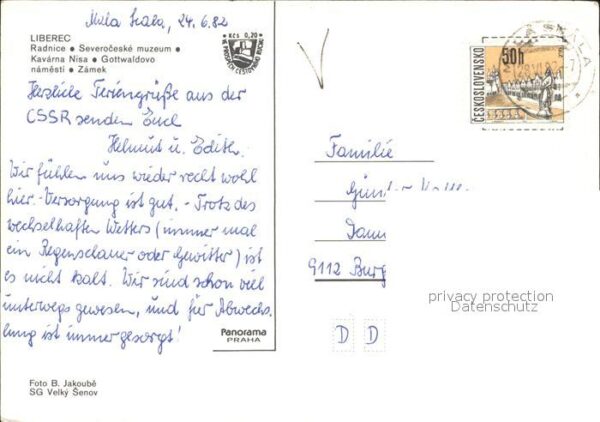 Mala Skala, 24.6.82
LIBEREC
Radnice • Severočeské muzeum •
Kavárna Nisa • Gottwaldovo
náměstí • Zámek
Kčs 0,20
Herzliche Feriengrüße aus der
CSSR senden Euch
Helmut u. Edith.
Wir fühlen uns wieder recht wohl
hier. - Versorgung ist gut. - Trotz des
wechselhaften Wetters (immer mal
ein Regenschauer oder Gewitter) ist
es nicht kalt. Wir sind schon viel
unterwegs gewesen, und für Abwechs
lung ist immer gesorgt!
Panorama
PRAHA
Foto B. Jakoubě
SG Velký Šenov
ČESKOSLOVENSKO
50h
SKALA
Familie
9112 Burg
privacy protection
Datenschutz
D D